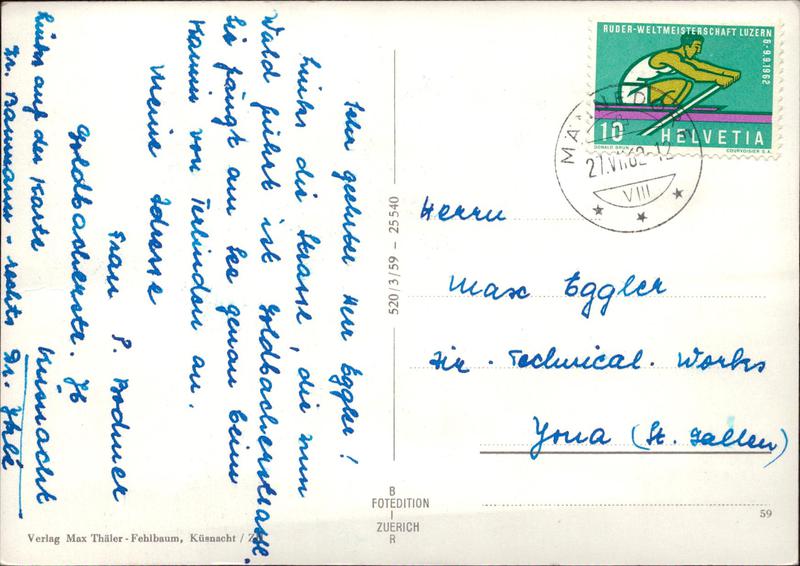 Sehr geehrter Herr Eggler!
Links die Strasse, die zum
Wald führt ist Goldbacherstrasse.
Sie fängt am See genau beim
Kamin von Terlinden an.
Meine Adresse
Frau P. Bodmer
Goldbacherstr. 76
Küsnacht
Links auf der Karte
Dr. Baumann - rechts Dr. Jklé
RUDER-WELTMEISTERSCHAFT LUZERN
6.-9.9.1962
10
HELVETIA
DONALD BRUN
COURVOISIER S.A.
MÄNNEDORF
27.VII.62-12
VIII
Herrn
Max Eggler
Fir. Technical. Works
Jona (St. Gallen)
520/3/59 - 25540
B
FOTEDITION
I
ZUERICH
R
59
Verlag Max Thäler-Fehlbaum, Küsnacht /